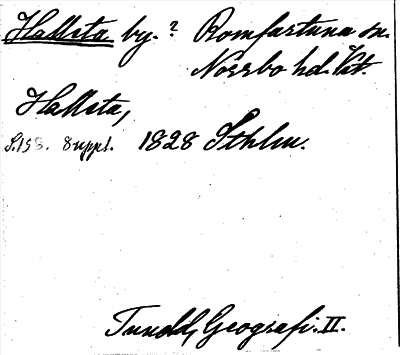 Hallsta by.? Romfartuna sn.
Norrbo hd. Vst.
Hallsta,
S.158. Suppl. 1828 Sthlm.
Tuneld, Geografi. II.